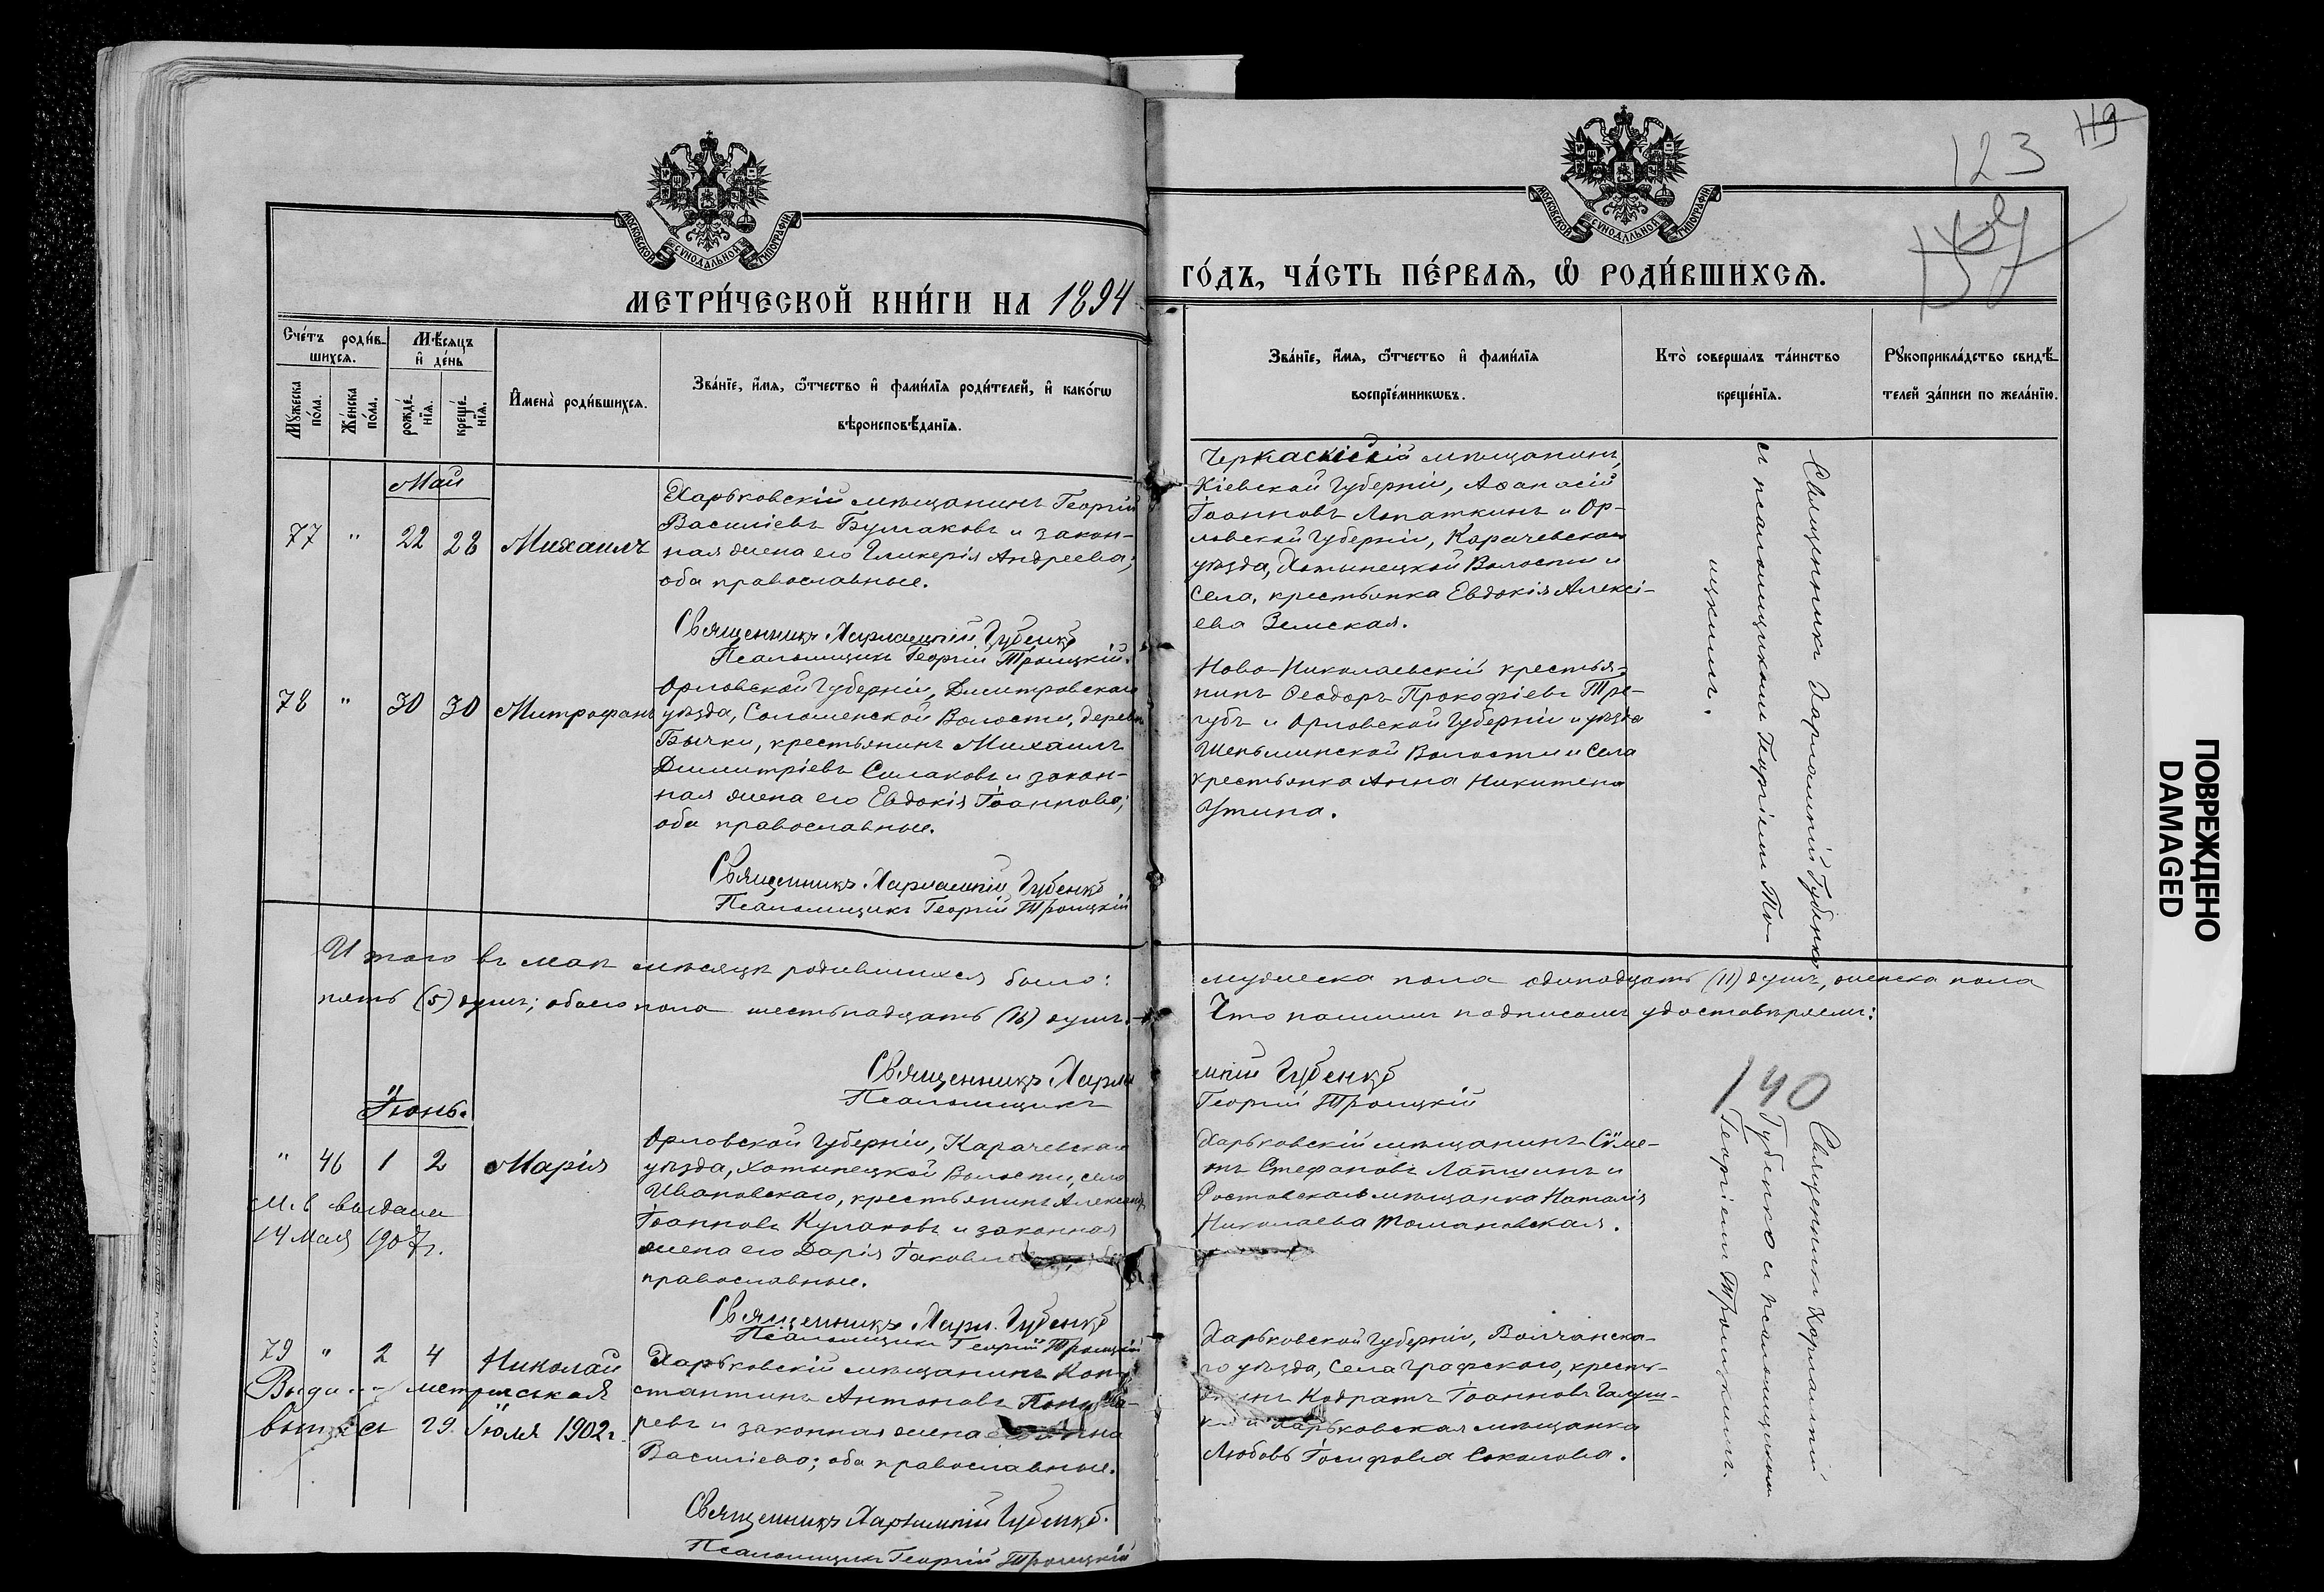 119
123
МОСКОВСКОЙ СѴНОДАЛЬНОЙ ТИПОГРАФІИ
МОСКОВСКОЙ СѴНОДАЛЬНОЙ ТИПОГРАФІИ
МЕТРИ́ЧЕСКОЙ КНИ́ГИ НА 1894
ГО́ДЪ, ЧА́СТЬ ПЕ́РВАЯ, Ѡ РОДИ́ВШИХСЯ.
Сче́тъ роди́в-
шихся.
Мꙋжеска
по́ла.
Же́нска
по́ла.
Мѣ́сяцъ
и де́нь
рожде́-
нїя.
креще́-
нїя.
Имена̀ роди́вшихся.
Зва́нїе, и́мя, о́тчество и фами́лїя роди́телей, и како́гѡ
вѣроисповѣ́данїя.
Зва́нїе, и́мя, о́тчество и фами́лїя
воспрїе́мникѡвъ.
Кто̀ совершалъ та́инство
креще́нїя.
Рꙋкоприкла́дство свидѣ́-
телей за́писи по жела́нїю.
Май
77 " 22 28 Михаилъ
Харьковскій мѣщанинъ Георгій
Василіевъ Булгаковъ и закон-
ная жена его Гликерія Андреева;
оба православные.
Священникъ Харлампій Губенко
Псаломщикъ Георгій Троицкій.
Черкаскій мѣщанинъ,
Кіевской Губерніи, Аѳанасій
Іоанновъ Лопаткинъ и Ор-
ловской Губерніи, Карачевскаго
уѣзда, Хотынецкой Волости и
села, крестьянка Евдокія Алексі-
ева Земская.
Священникъ Харлампій Губенко
и псаломщикомъ Георгіемъ Тро-
ицкимъ.
78 " 30 30 Митрофанъ
Орловской Губерніи, Димитровскаго
уѣзда, Соломенской Волости, деревни
Бычки, крестьянинъ Михаилъ
Димитріевъ Силаковъ и закон-
ная жена его Евдокія Іоаннова;
оба православные.
Священникъ Харлампій Губенко
Псаломщикъ Георгій Троицкій
Ново-Николаевскій крестья-
нинъ Ѳеодоръ Прокофіевъ Тре-
губъ и Орловской Губерніи и уѣзда
Волости и села
крестьянка Анна Никитина
Утина.
Итого въ маѣ мѣсяцѣ родившихся было: мужеска пола одинадцать (11) душъ, женска пола
пять (5) душъ; обоего пола шестьнадцать (16) душъ. Что нашимъ подписомъ удостовѣряемъ:
Священникъ Харлампій Губенко
Псаломщикъ Георгій Троицкій
140
Іюнь.
" 46 1 2 Марія
М. в выдана
14 Мая 1907 г.
Орловской Губерніи, Карачевскаго
уѣзда, Хотынецкой Волости, села
Ивановскаго, крестьянинъ Александръ
Іоанновъ Кулаковъ и законная
жена его Дарія
православные.
Священникъ Харл. Губенко
Псаломщикъ Георгій Троицкій
Харьковскій мѣщанинъ Сѵме-
онъ Стефановъ Лапшинъ и
Ростовская мѣщанка Наталія
Николаева Томановская.
Священникъ Харлампій
Губенко и псаломщикомъ
Георгіемъ Троицкимъ.
79 " 2 4 Николай
метрическая
выпись 29 Іюля 1902 г.
Харьковскій мѣщанинъ Кон-
стантинъ Антоновъ
ревъ и законная жена его Анна
Василіева; оба православные.
Священникъ Харлампій Губенко.
Псаломщикъ Георгій Троицкій
Харьковской Губерніи, Волчанска-
го уѣзда, Села Графскаго, кресть-
янинъ Кодратъ Іоанновъ Галуш-
ко и Харьковская мѣщанка
Любовь Іосифова Соколова.
ПОВРЕЖДЕНО
DAMAGED